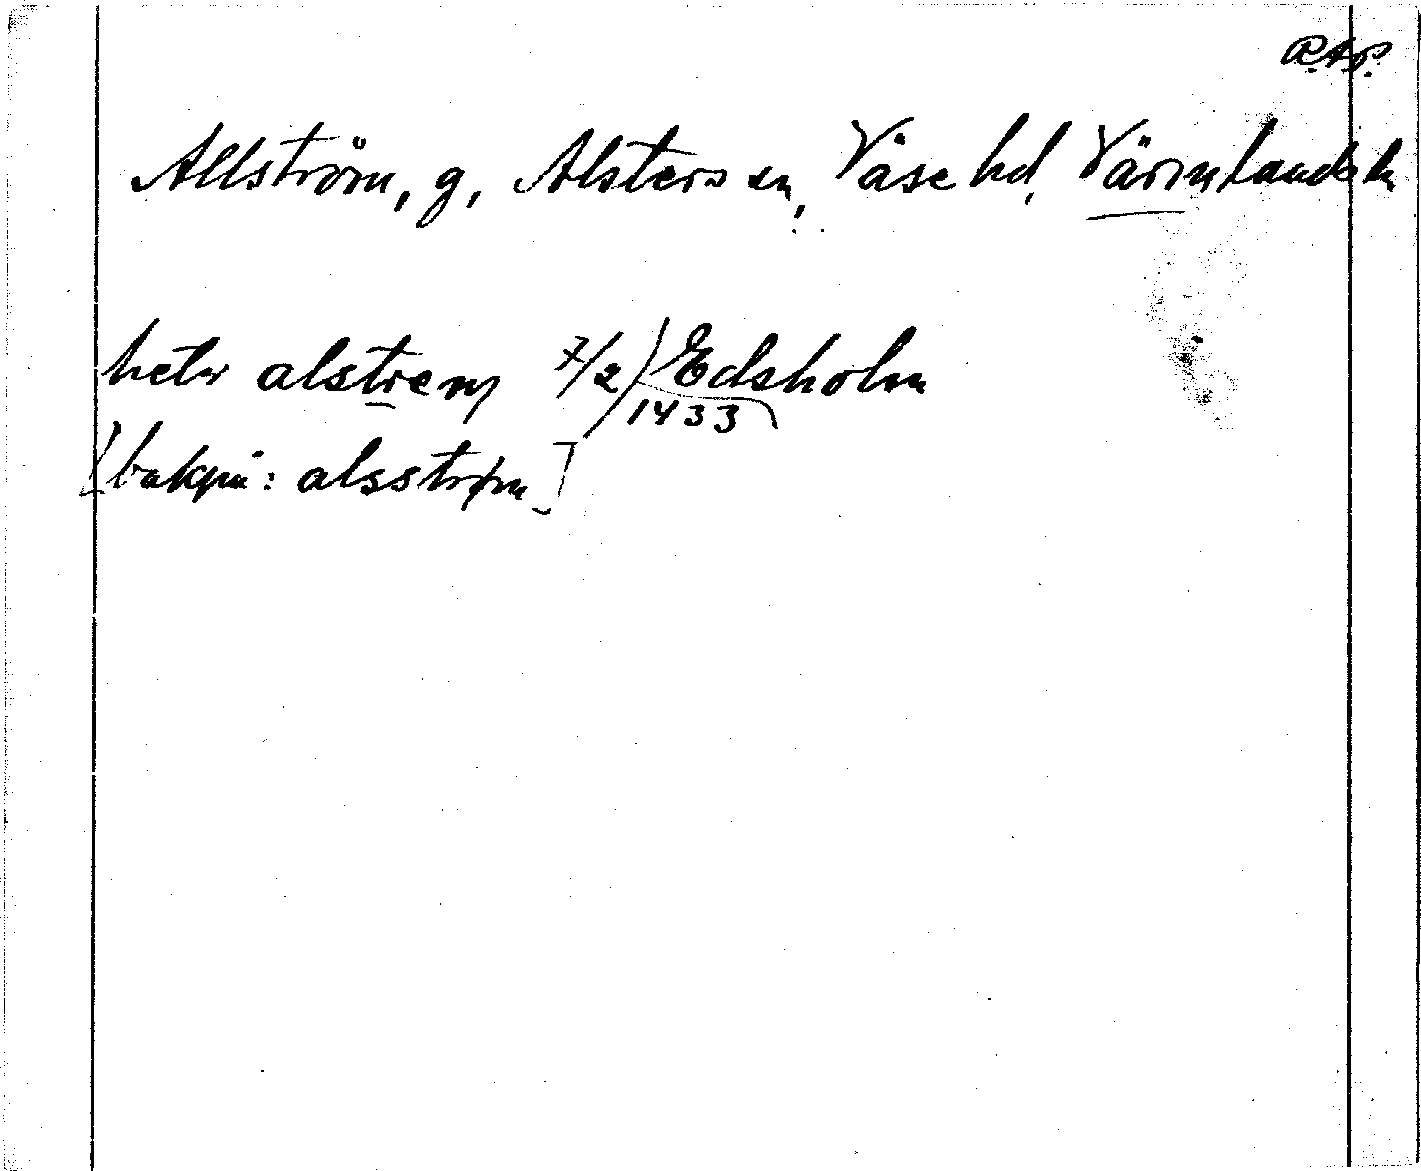 R.A.P.
Allström, g, Alsters sn, Väse hd, Värmlands ln
hetir alstrem 7/2 1433 Edsholm
[bakpå: alsstrøm]